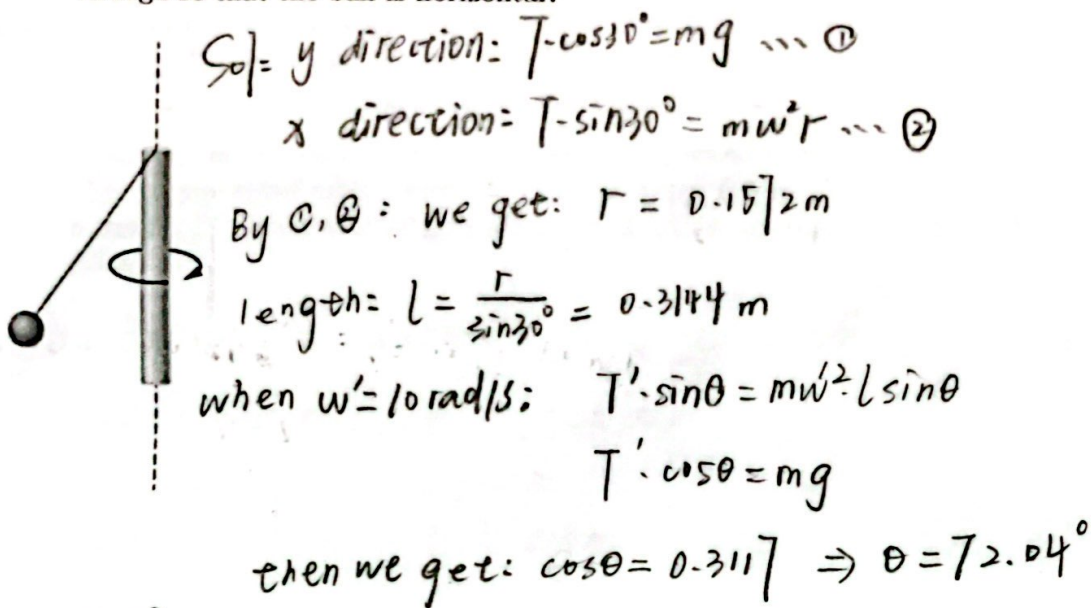 Sol: y direction: T·cos30°=mg ... ①
x direction: T·sin30° = mw²r ... ②
By ①,②: we get: r = 0.1572m
length: l = r/sin30° = 0.3144 m
when w'=10rad/s: T'·sinθ = mw'²·l sinθ
T'·cosθ = mg
then we get: cosθ = 0.3117 ⇒ θ = 72.04°